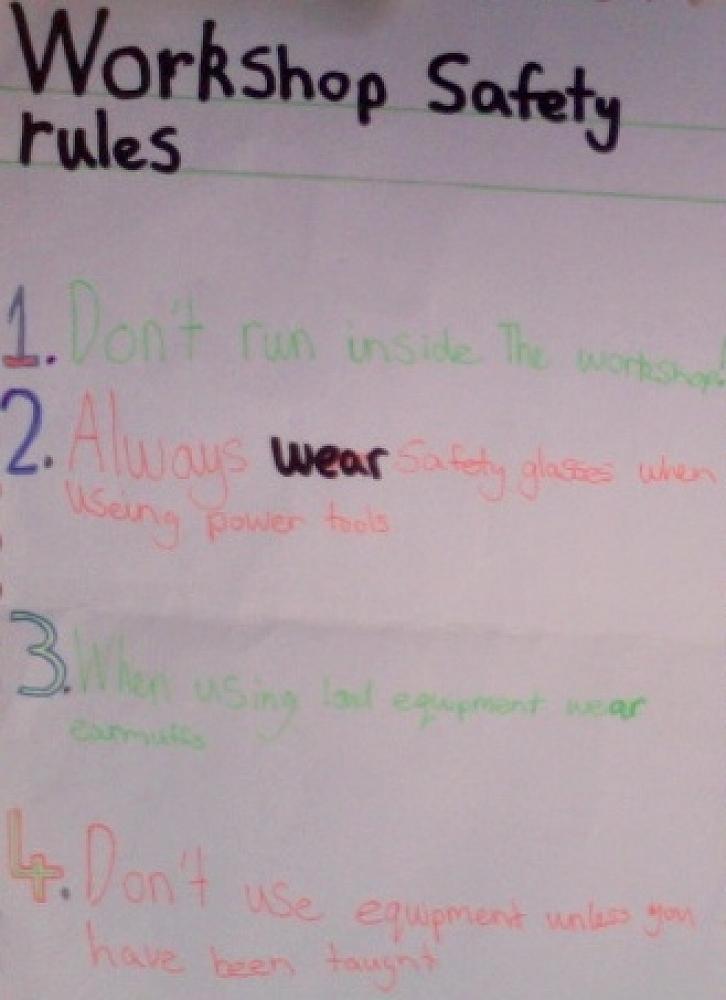 Workshop Safety
rules
1. Don't run inside The workshop!
2. Always wear Safety glasses when
Useing power tools
3. When using loud equipment wear
earmuffs
4. Don't use equipment unless you
have been taught